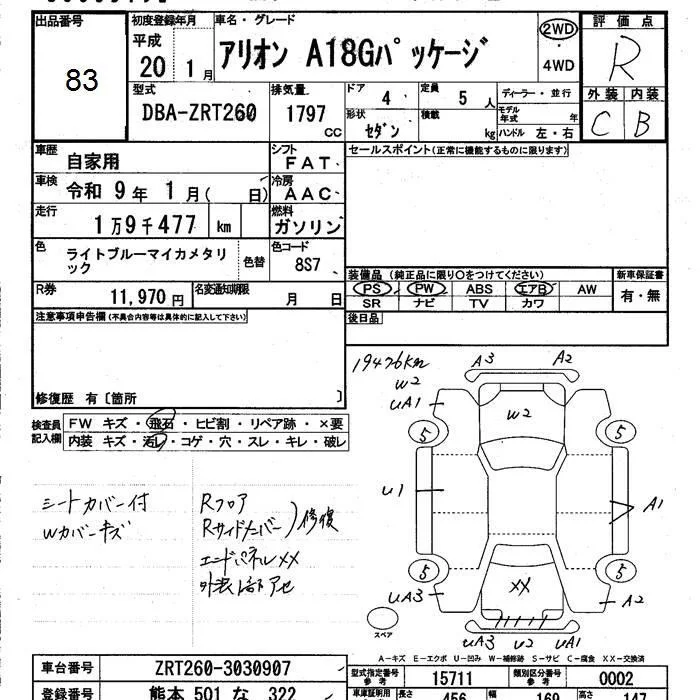 出品番号
83
初度登録年月
平成
20 1 月
車名・グレード
アリオン A18Gパッケージ
2WD
・
4WD
評価点
R
外装 内装
C B
型式
DBA-ZRT260
排気量
1797
CC
ドア
4
定員
5 人
形状
セダン
積載
kg
ディーラー・並行
モデル
年式
年
ハンドル 左・右
車歴
自家用
シフト
FAT
セールスポイント(正常に機能するものに限ります)
車検
令和 9 年 1 月( 日)
冷房
AAC
走行
1万9千477 km
燃料
ガソリン
色
ライトブルーマイカメタリ
ック
色替
色コード
8S7
R券
11,970 円
名変通知期限
月 日
装備品(純正品に限り○をつけてください)
PS PW ABS エアB AW
SR ナビ TV カワ
新車保証書
有・無
後日品
注意事項申告欄(不具合内容等は具体的に記入して下さい)
修復歴 有〔箇所 〕
検査員
記入欄
FW キズ・飛石・ヒビ割・リペア跡・×要
内装 キズ・汚レ・コゲ・穴・スレ・キレ・破レ
シートカバー付
Wカバーキズ
Rフロア
Rサイドメンバー)修復
エンドパネルXX
19476km
W2
A3 A2
UA1
W2
5 5
U1
A1
5 5
XX
UA3
A2
UA3 U2 UA1
スペア
A-キズ E-エクボ U-凹み W-補修跡 S-サビ C-腐食 XX-交換済
車台番号
ZRT260-3030907
型式指定番号
参考
15711
類別区分番号
参考
0002
登録番号
熊本 501 な 322
車車証明用
長さ
456
幅
169
高さ
147